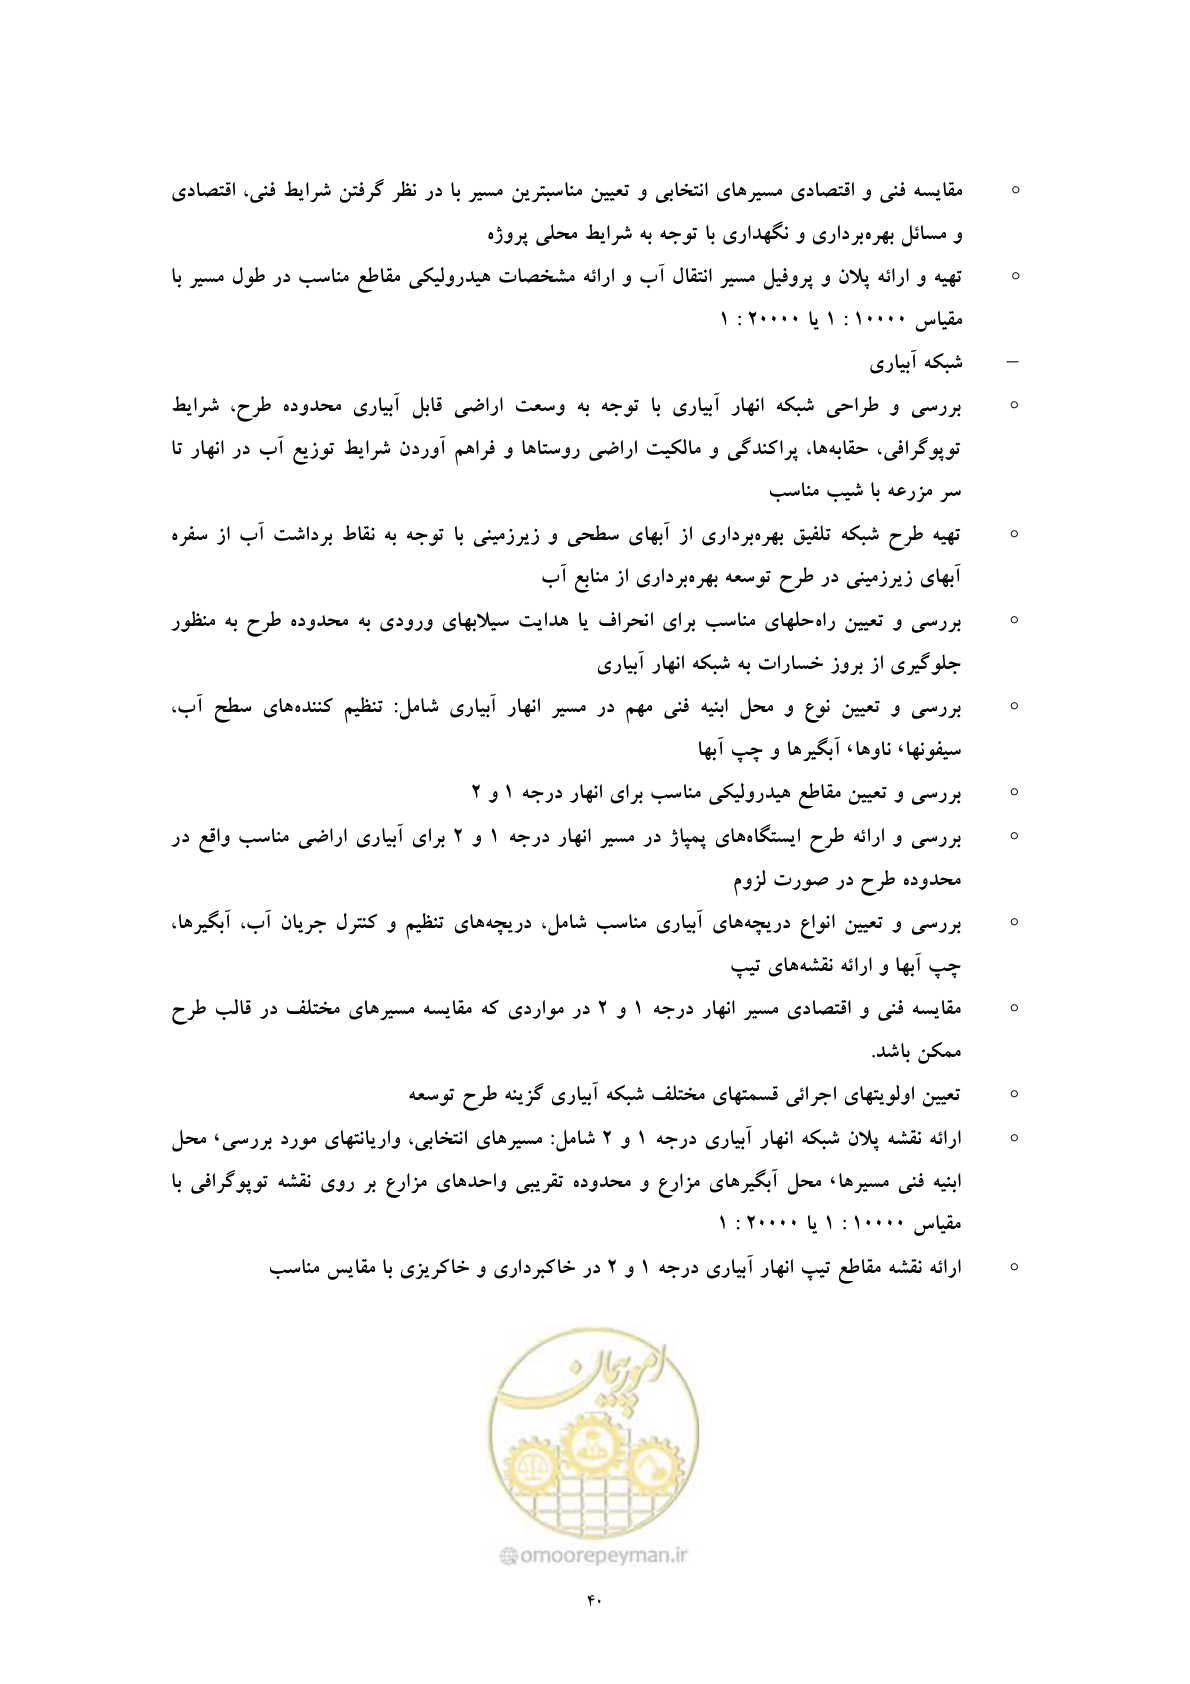 ○ مقایسه فنی و اقتصادی مسیرهای انتخابی و تعیین مناسبترین مسیر با در نظر گرفتن شرایط فنی، اقتصادی
و مسائل بهره‌برداری و نگهداری با توجه به شرایط محلی پروژه
○ تهیه و ارائه پلان و پروفیل مسیر انتقال آب و ارائه مشخصات هیدرولیکی مقاطع مناسب در طول مسیر با
مقیاس ۱۰۰۰۰ : ۱ یا ۲۰۰۰۰ : ۱
– شبکه آبیاری
○ بررسی و طراحی شبکه انهار آبیاری با توجه به وسعت اراضی قابل آبیاری محدوده طرح، شرایط
توپوگرافی، حقابه‌ها، پراکندگی و مالکیت اراضی روستاها و فراهم آوردن شرایط توزیع آب در انهار تا
سر مزرعه با شیب مناسب
○ تهیه طرح شبکه تلفیق بهره‌برداری از آبهای سطحی و زیرزمینی با توجه به نقاط برداشت آب از سفره
آبهای زیرزمینی در طرح توسعه بهره‌برداری از منابع آب
○ بررسی و تعیین راه‌حلهای مناسب برای انحراف یا هدایت سیلابهای ورودی به محدوده طرح به منظور
جلوگیری از بروز خسارات به شبکه انهار آبیاری
○ بررسی و تعیین نوع و محل ابنیه فنی مهم در مسیر انهار آبیاری شامل: تنظیم کننده‌های سطح آب،
سیفونها، ناوها، آبگیرها و چپ آبها
○ بررسی و تعیین مقاطع هیدرولیکی مناسب برای انهار درجه ۱ و ۲
○ بررسی و ارائه طرح ایستگاه‌های پمپاژ در مسیر انهار درجه ۱ و ۲ برای آبیاری اراضی مناسب واقع در
محدوده طرح در صورت لزوم
○ بررسی و تعیین انواع دریچه‌های آبیاری مناسب شامل، دریچه‌های تنظیم و کنترل جریان آب، آبگیرها،
چپ آبها و ارائه نقشه‌های تیپ
○ مقایسه فنی و اقتصادی مسیر انهار درجه ۱ و ۲ در مواردی که مقایسه مسیرهای مختلف در قالب طرح
ممکن باشد.
○ تعیین اولویتهای اجرائی قسمتهای مختلف شبکه آبیاری گزینه طرح توسعه
○ ارائه نقشه پلان شبکه انهار آبیاری درجه ۱ و ۲ شامل: مسیرهای انتخابی، واریانتهای مورد بررسی، محل
ابنیه فنی مسیرها، محل آبگیرهای مزارع و محدوده تقریبی واحدهای مزارع بر روی نقشه توپوگرافی با
مقیاس ۱۰۰۰۰ : ۱ یا ۲۰۰۰۰ : ۱
○ ارائه نقشه مقاطع تیپ انهار آبیاری درجه ۱ و ۲ در خاکبرداری و خاکریزی با مقایس مناسب
امور پیمان
@omoorepeyman.ir
۴۰